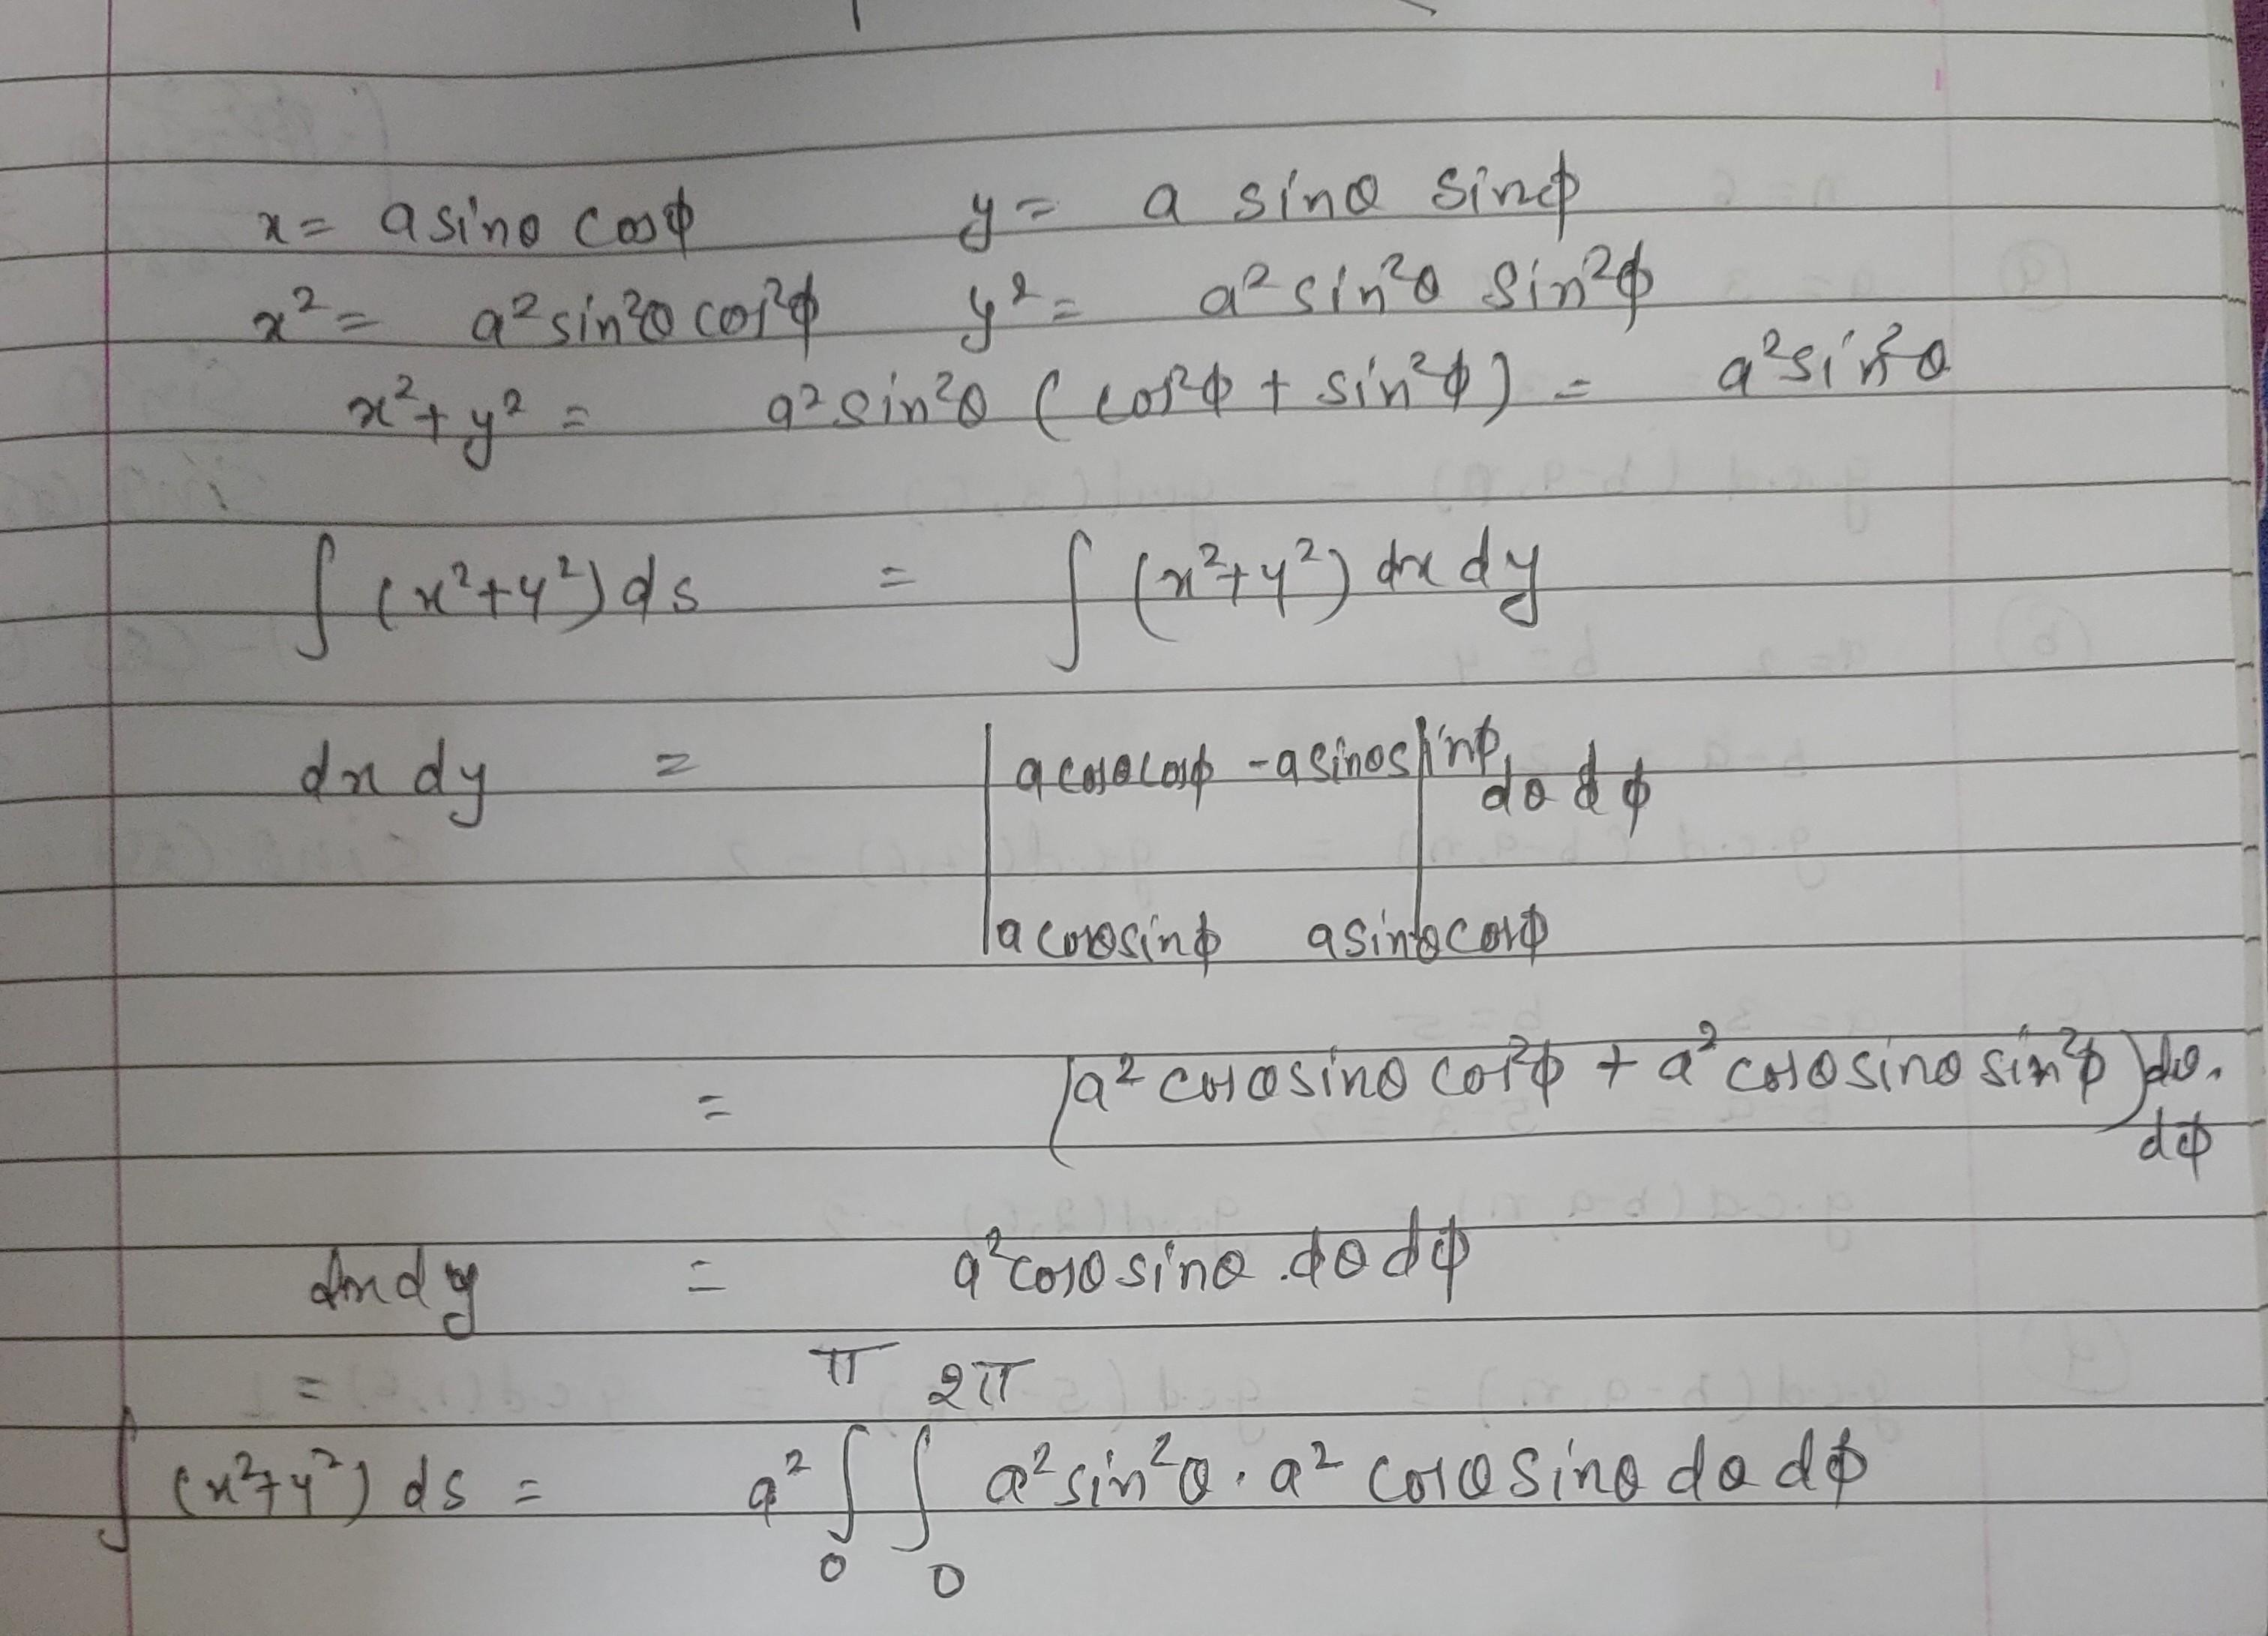 x = a sinθ cosϕ y = a sinθ sinϕ
x² = a² sin²θ cos²ϕ y² = a² sin²θ sin²ϕ
x² + y² = a² sin²θ ( cos²ϕ + sin²ϕ ) = a² sin²θ
∫ (x²+y²) ds = ∫ (x²+y²) dx dy
dx dy = | a cosθ cosϕ -a sinθ sinϕ | dθ dϕ
| a cosθ sinϕ a sinθ cosϕ |
= (a² cosθ sinθ cos²ϕ + a² cosθ sinθ sin²ϕ) dθ.
dϕ
dx dy = a² cosθ sinθ . dθ dϕ
= π 2π
∫ (x²+y²) ds = a² ∫ ∫ a² sin²θ . a² cosθ sinθ dθ dϕ
0 0